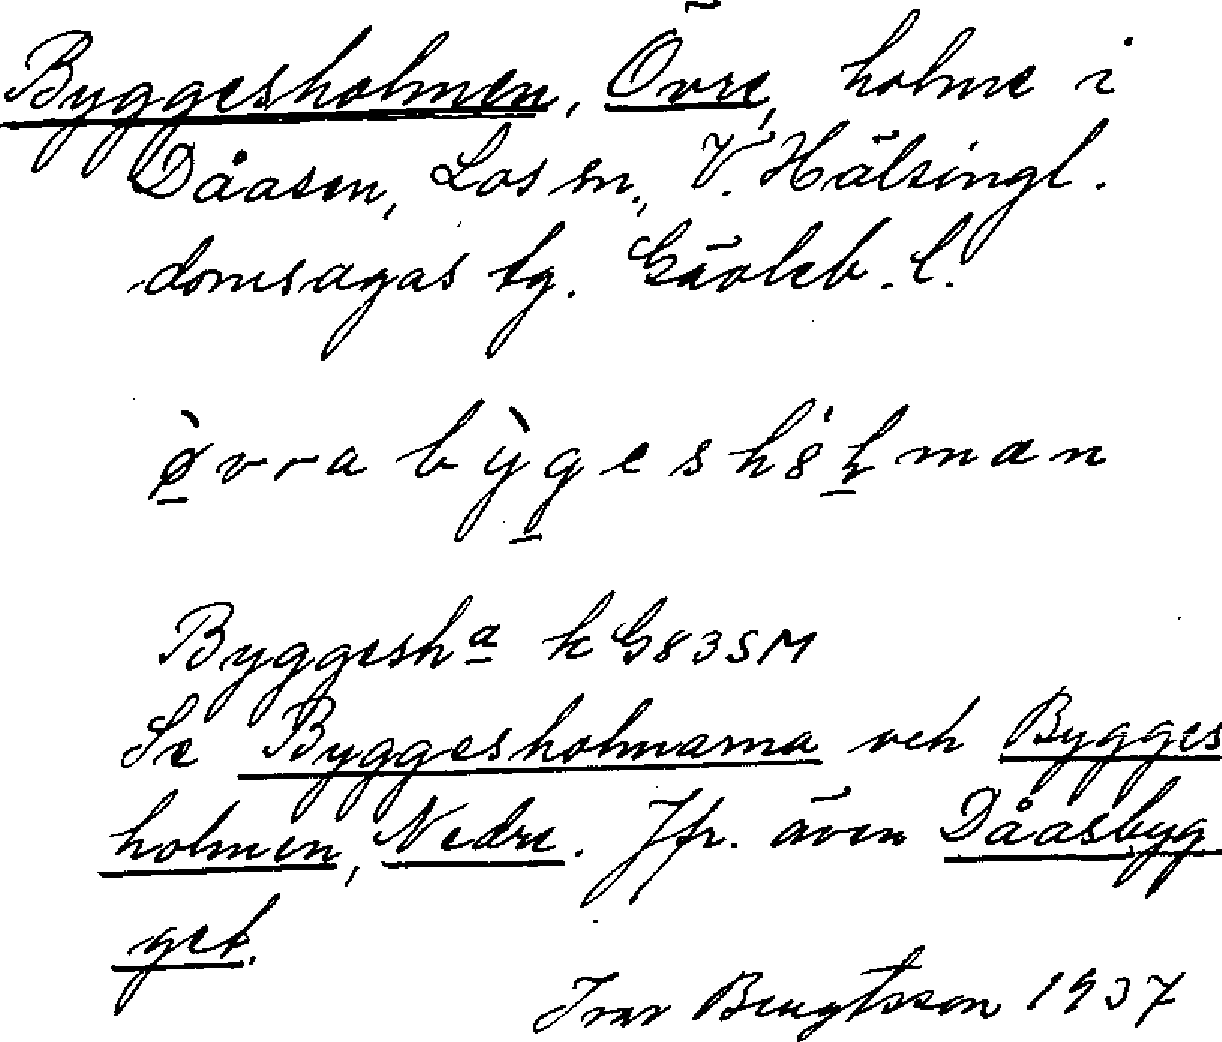 Byggesholmen, Övre, holme i
Dåasen, Los sn., V. Hälsingl.
domsagas tg. Gävleb. l.
ø̀vra bỳgeshȯ̀lman
Byggesh<u>a</u> k G83SM
Se Byggesholmarna och Bygges
holmen, Nedre. Jfr. även Dåasbyg
get.
Ivar Bengtsson 1937